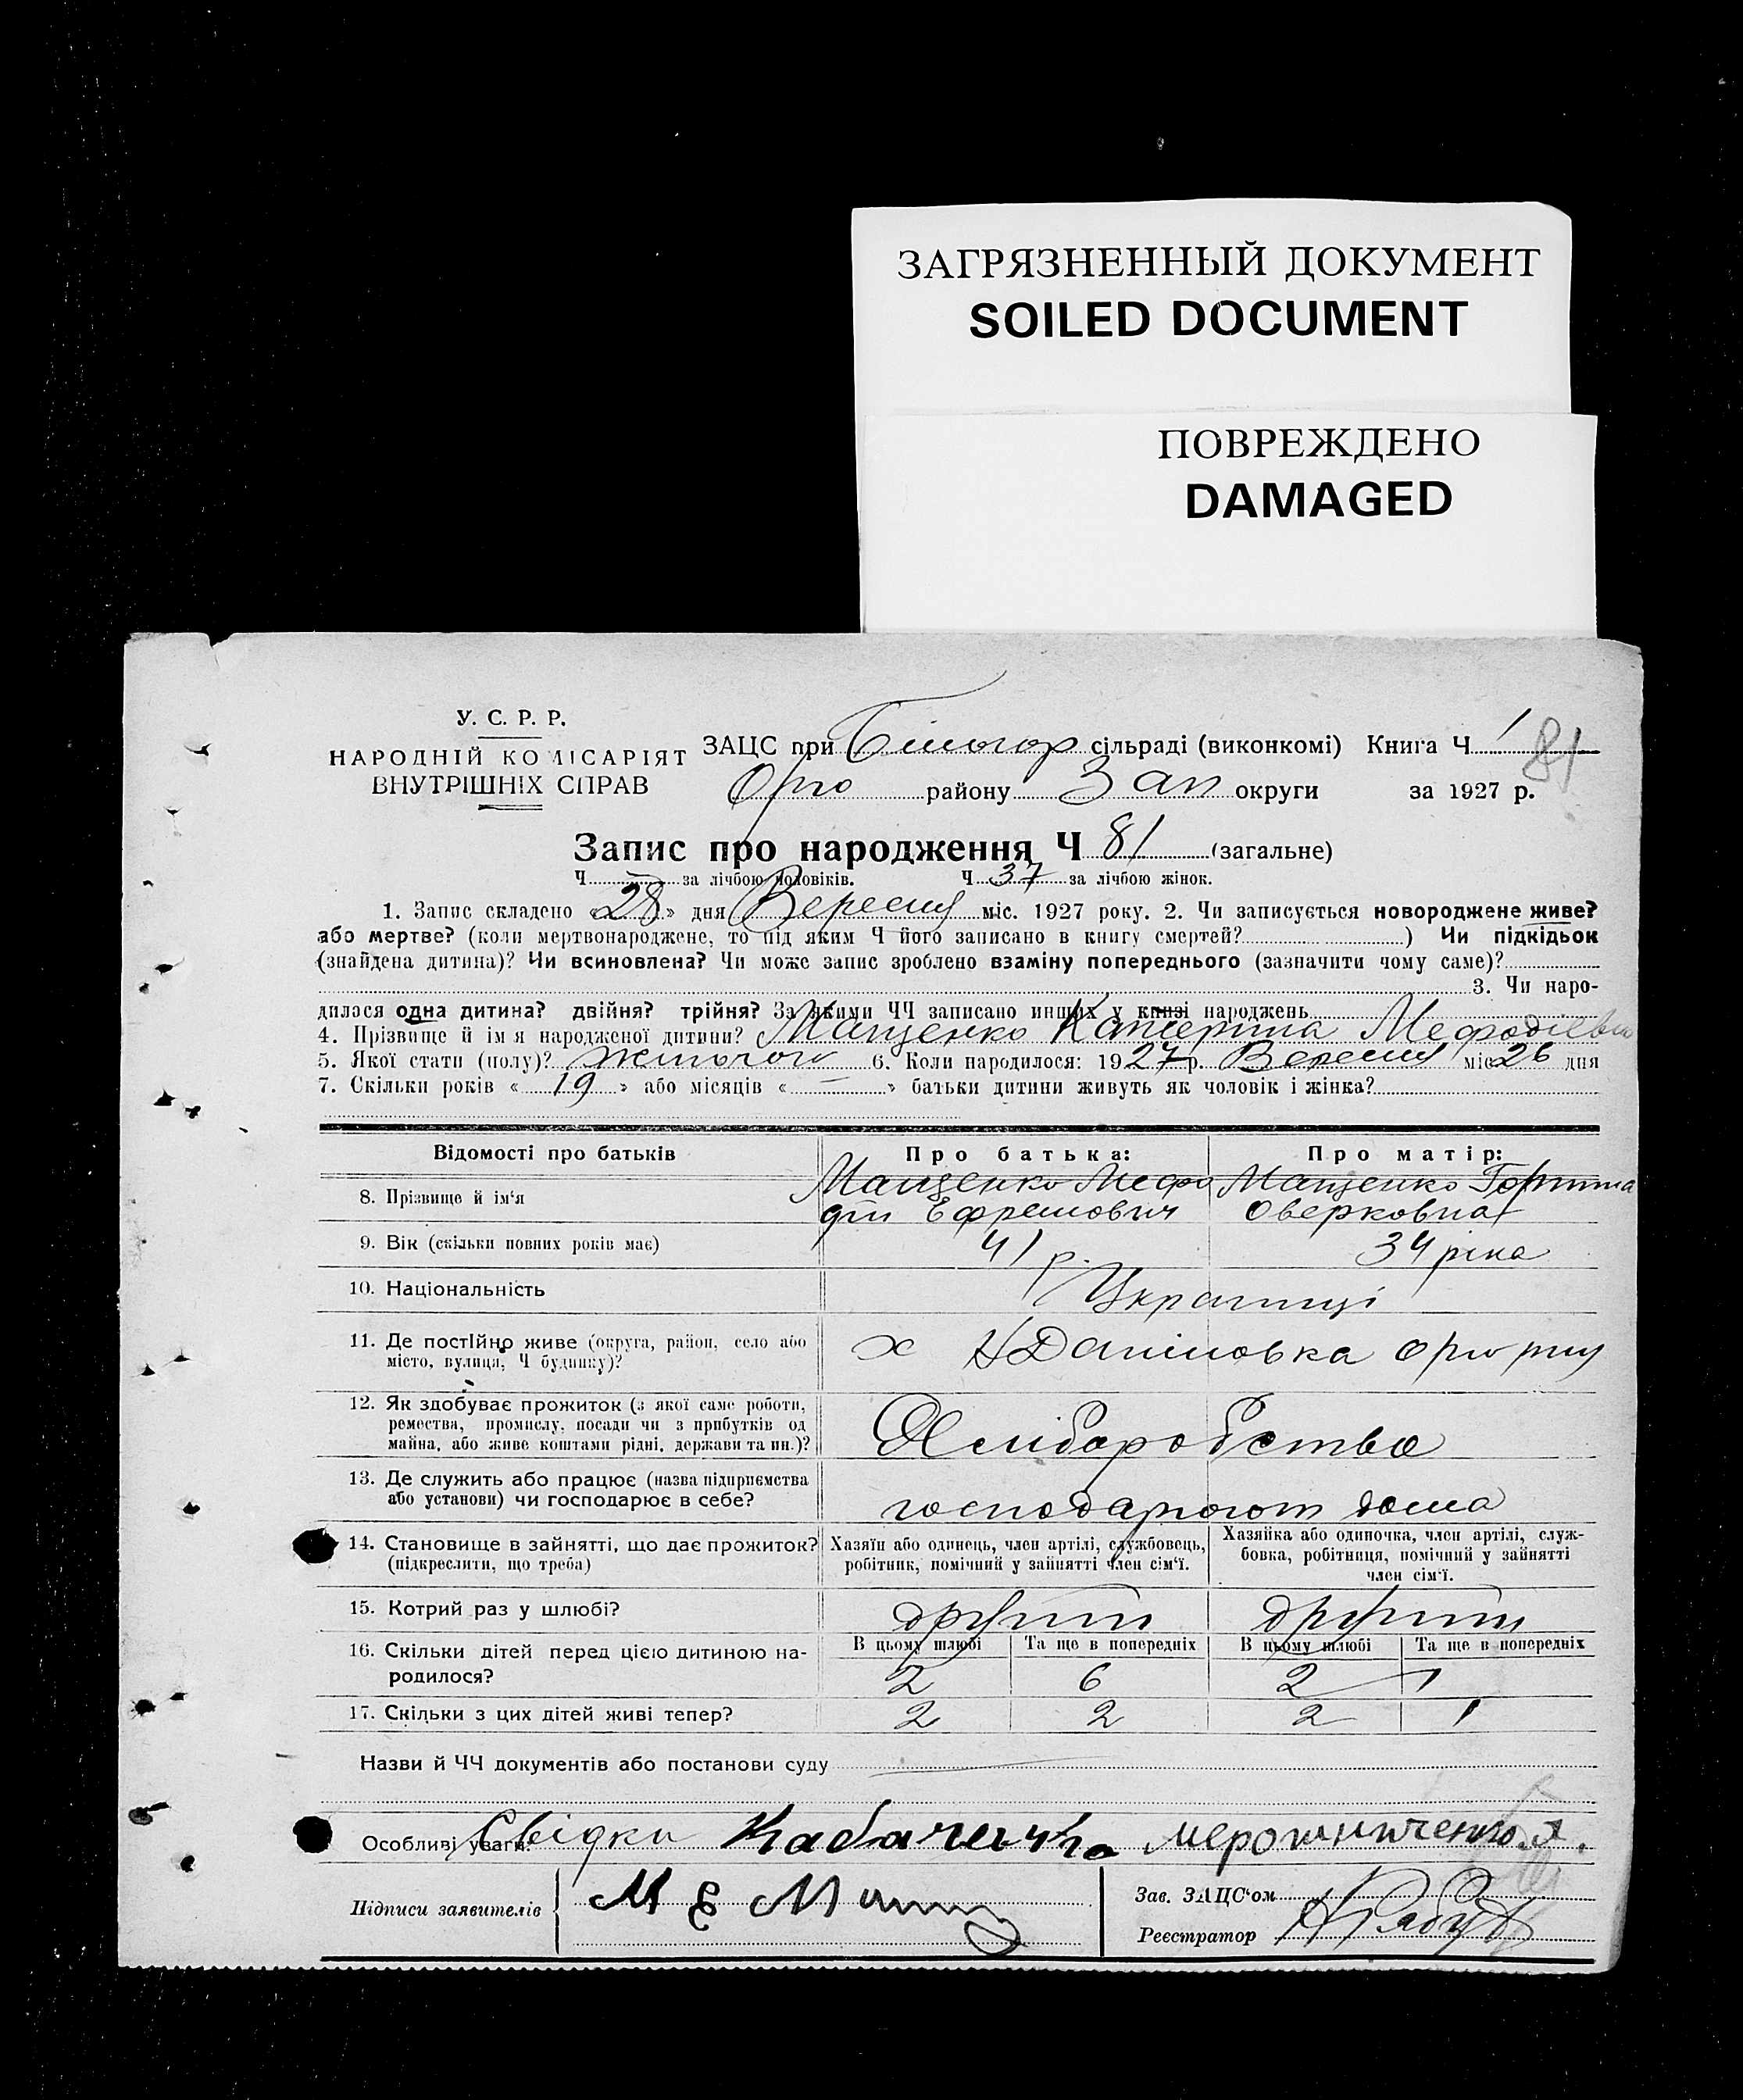 ЗАГРЯЗНЕННЫЙ ДОКУМЕНТ
SOILED DOCUMENT
ПОВРЕЖДЕНО
DAMAGED
У. С. Р. Р.
НАРОДНІЙ КОМІСАРІЯТ
ВНУТРІШНІХ СПРАВ
ЗАЦС при Білогор сільраді (виконкомі) Книга Ч 1
81
Оріо району Зап округи за 1927 р.
Запис про народження Ч 81 (загальне)
Ч — за лічбою чоловіків. Ч 37 за лічбою жінок.
1. Запис складено «28» дня Вересня міс. 1927 року. 2. Чи записується новороджене живе?
або мертве? (коли мертвонароджене, то під яким Ч його записано в книгу смертей? ) Чи підкідьок
(знайдена дитина)? Чи всиновлена? Чи може запис зроблено взаміну попереднього (зазначити чому саме)?
3. Чи наро-
дилася одна дитина? двійня? трійня? За якими ЧЧ записано инших у книзі народжень
4. Прізвище й ім'я народженої дитини? Мащенко Катерина Мефодіевна
5. Якої стати (полу)? жіночої 6. Коли народилося: 1927 р. Вересня міс 26 дня
7. Скільки років « 19 » або місяців « — » батьки дитини живуть як чоловік і жінка?
Відомості про батьків Про батька: Про матір:
8. Прізвище й ім'я Мащенко Мефо Мащенко Горпина
дій Ефремович Оверковна
9. Вік (скільки повних років має) 41 р. 34 роки
10. Національність Українці
11. Де постійно живе (округа, район, село або
місто, вулиця, Ч будинку)? х Даніловка
12. Як здобуває прожиток (з якої саме роботи,
ремества, промислу, посади чи з прибутків од
майна, або живе коштами рідні, держави та ин.)? Хліборобство
13. Де служить або працює (назва підприємства
або установи) чи господарює в себе? господарюют дома
14. Становище в зайнятті, що дає прожиток? (підкреслити, що треба)
Хазяїн або одинець, член артілі, службовець,
робітник, помічний у зайнятті член сім'ї.
Хазяйка або одиночка, член артілі, служ-
бовка, робітниця, помічний у зайнятті
член сім'ї.
15. Котрий раз у шлюбі? другий другий
В цьому шлюбі Та ще в попередніх В цьому шлюбі Та ще в попередніх
16. Скільки дітей перед цією дитиною на-
родилося? 2 6 2 1
17. Скільки з цих дітей живі тепер? 2 2 2 1
Назви й ЧЧ документів або постанови суду
Особливі уваги: Свідки
Підписи заявителів М Е
Зав. ЗАЦС'ом
Реєстратор